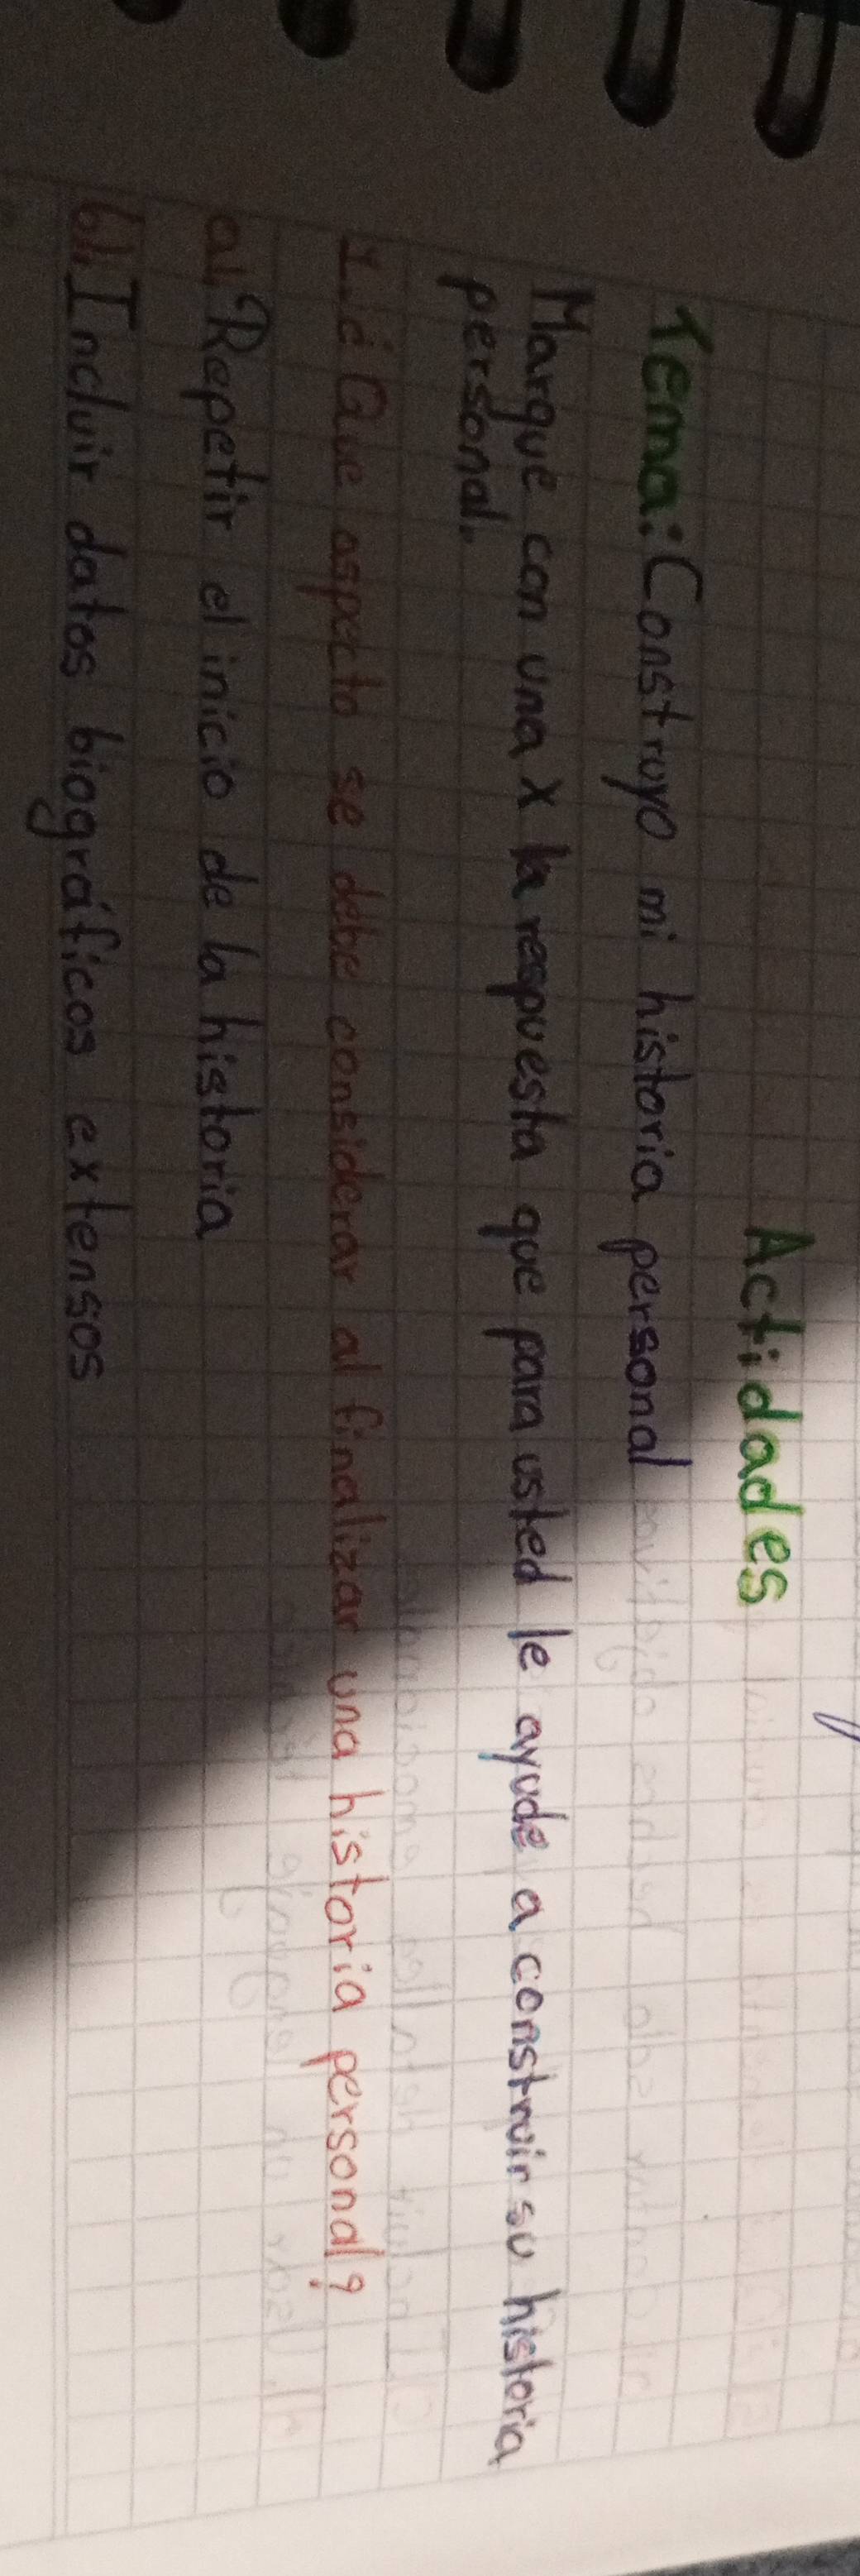 Actidades
Tema: Construyo mi historia personal
Marque con una X la respuesta que para usted le ayude a construir su historia
personal.
1. ¿Que aspecto se debe considerar al finalizar una historia personal?
a). Repetir el inicio de la historia
b). Incluir datos biográficos extensos